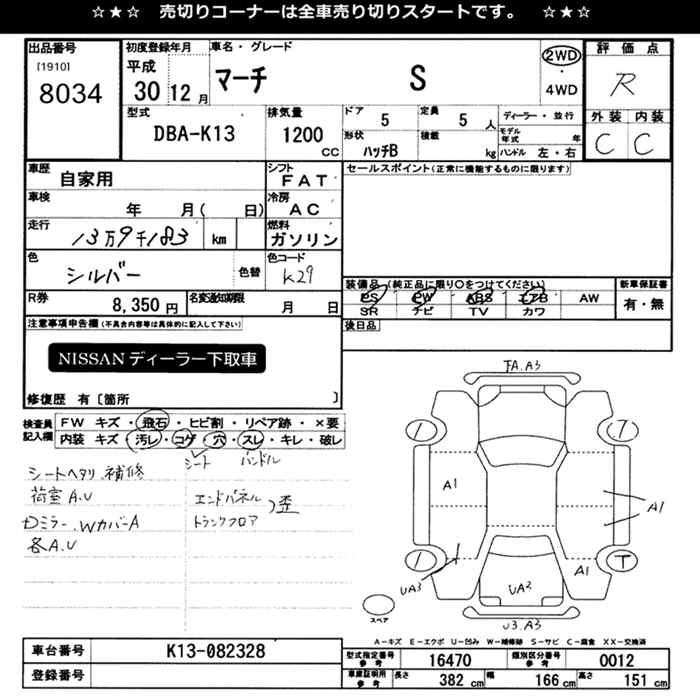 ☆★☆ 売切りコーナーは全車売り切りスタートです。 ☆★☆
出品番号
[1910]
8034
初度登録年月
平成
30 12 月
車名・グレード
マーチ S
2WD
・
4WD
評価点
R
外装 内装
C C
型式
DBA-K13
排気量
1200
cc
ドア
5
定員
5 人
形状
ハッチB
積載
kg
ディーラー・並行
モデル年式 年
ハンドル 左・右
車歴
自家用
シフト
FAT
車検
年 月( 日)
冷房
AC
走行
13万9千183 km
燃料
ガソリン
色
シルバー
色替
色コード
K29
R券
8,350 円
名変通知期限
月 日
セールスポイント(正常に機能するものに限ります)
装備品(純正品に限り○をつけてください)
PS PW ABS エアB AW
SR ナビ TV カワ
新車保証書
有・無
後日品
注意事項申告欄(不具合内容等は具体的に記入して下さい)
NISSANディーラー下取車
修復歴 有〔箇所 〕
検査員記入欄
FW キズ・飛石・ヒビ割・リペア跡・×要
内装 キズ・汚レ・コゲ・穴・スレ・キレ・破レ
シート ハンドル
シートヘタリ.補修
荷室A.U
Dミラー.Wカバー A
各A.U
エンドパネル
トランクフロア
歪
FA.A3
7
7
A1
A1
1
T
UA3
A1
UA2
U3.A3
スペア
A-キズ E-エクボ U-凹み W-補修跡 S-サビ C-腐食 XX-交換済
車台番号
K13-082328
登録番号
型式指定番号
参考
16470
類別区分番号
参考
0012
車庫証明用
参考
長さ
382 cm
幅
166 cm
高さ
151 cm